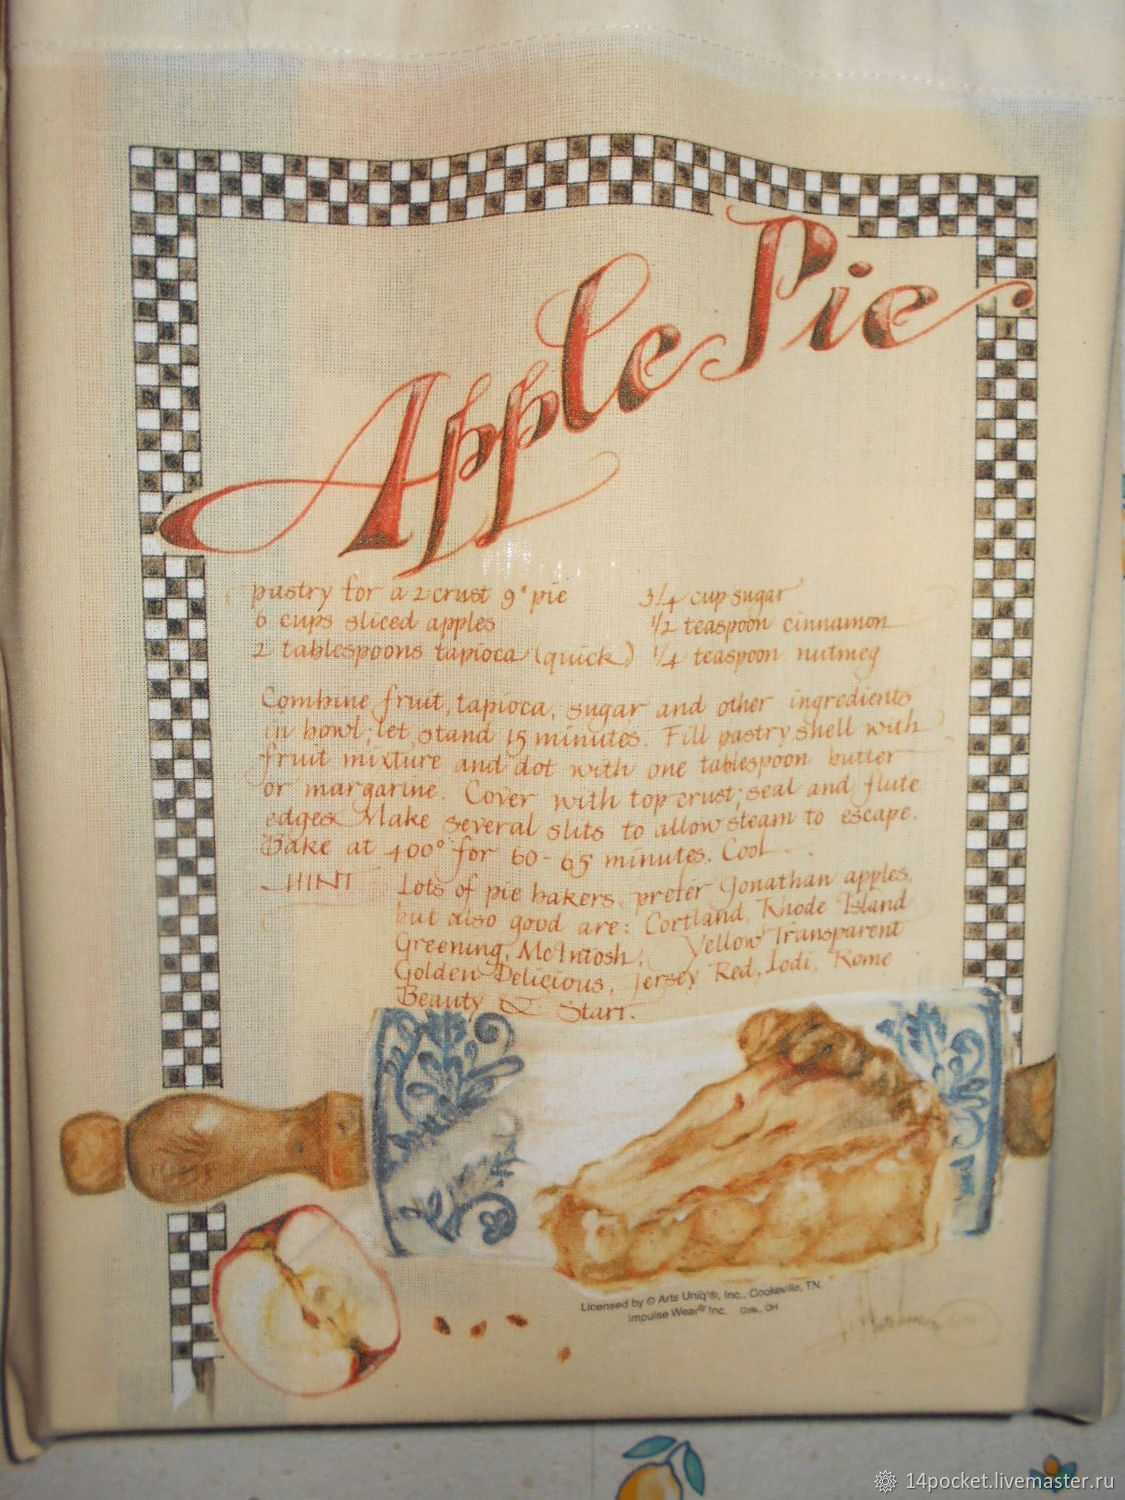 Apple Pie
pastry for a 2 crust 9" pie
6 cups sliced apples
2 tablespoons tapioca (quick)
3/4 cup sugar
1/2 teaspoon cinnamon
1/4 teaspoon nutmeg
Combine fruit, tapioca, sugar and other ingredients
in bowl; let stand 15 minutes. Fill pastry shell with
fruit mixture and dot with one tablespoon butter
or margarine. Cover with top crust; seal and flute
edges. Make several slits to allow steam to escape.
Bake at 400° for 60-65 minutes. Cool
HINT Lots of pie bakers prefer Jonathan apples,
but also good are: Cortland, Rhode Island
Greening, McIntosh, Yellow Transparent
Golden Delicious, Jersey Red, Lodi, Rome
Beauty & Starr.
Licensed by © Arts Uniq'®, Inc., Cookeville, TN.
Impulse Wear® Inc. OH
14pocket.livemaster.ru